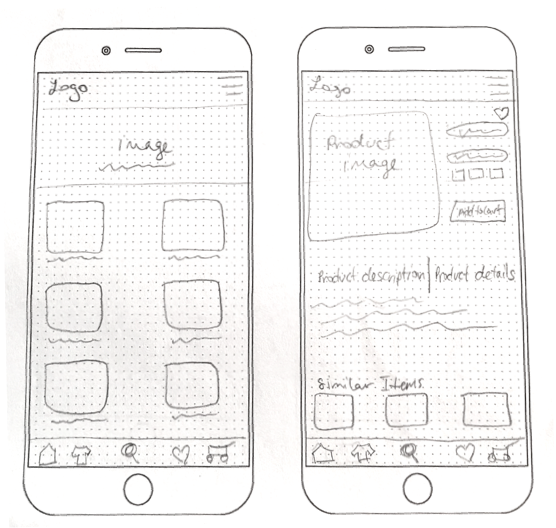 Logo
image
Logo
Product
image
Add to cart
Product description | Product details
Similar Items